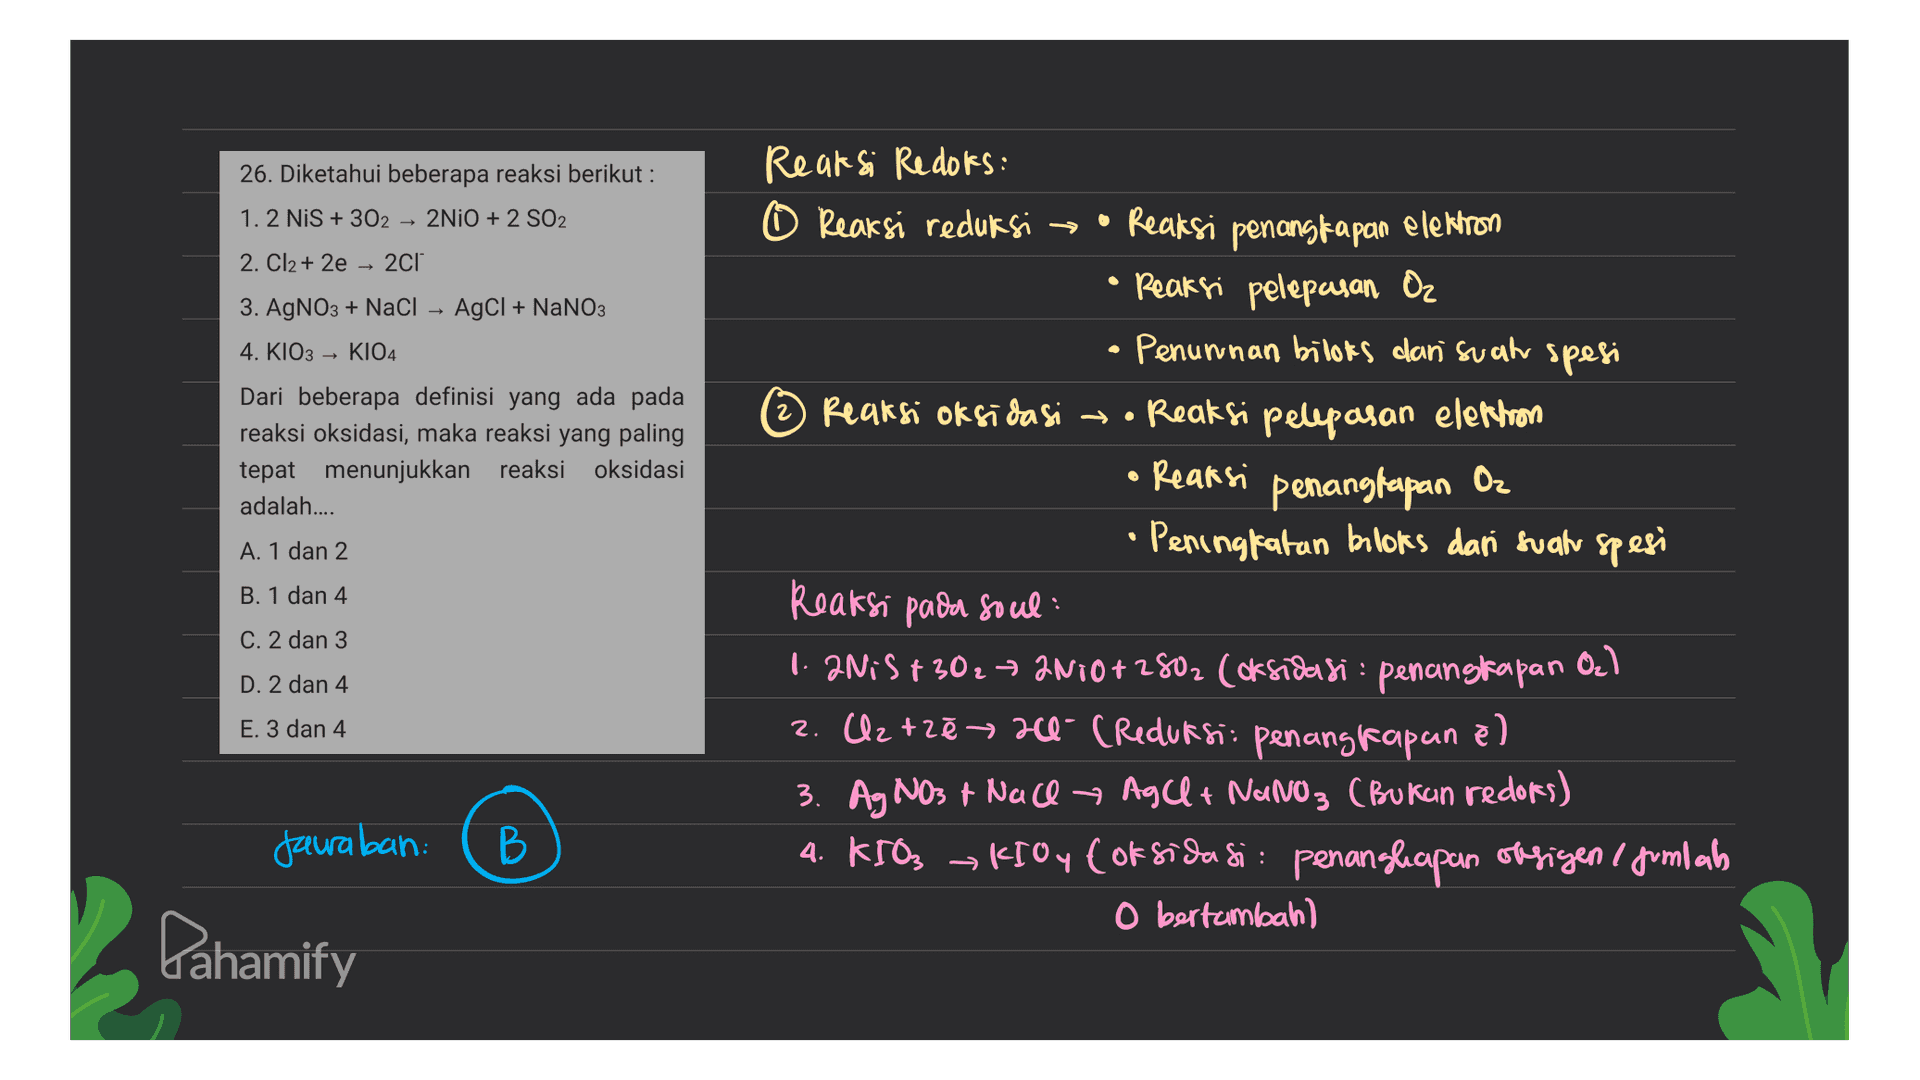 26. Diketahui beberapa reaksi berikut :
1. 2 NiS + 3O₂ → 2NiO + 2 SO₂
2. Cl₂ + 2e → 2Cl⁻
3. AgNO₃ + NaCl → AgCl + NaNO₃
4. KIO₃ → KIO₄
Dari beberapa definisi yang ada pada
reaksi oksidasi, maka reaksi yang paling
tepat menunjukkan reaksi oksidasi
adalah....
A. 1 dan 2
B. 1 dan 4
C. 2 dan 3
D. 2 dan 4
E. 3 dan 4
Jawaban: B
Reaksi Redoks:
① Reaksi reduksi → • Reaksi penangkapan elektron
• Reaksi pelepasan O₂
• Penurunan biloks dari suatu spesi
② Reaksi oksidasi → • Reaksi pelepasan elektron
• Reaksi penangkapan O₂
• Peningkatan biloks dari suatu spesi
Reaksi pada soal:
1. 2NiS + 3O₂ → 2NiO + 2SO₂ (oksidasi : penangkapan O₂)
2. Cl₂ + 2ē → 2Cl⁻ (Reduksi: penangkapan ē)
3. AgNO₃ + NaCl → AgCl + NaNO₃ (Bukan redoks)
4. KIO₃ → KIO₄ (oksidasi : penangkapan oksigen / jumlah
O bertambah)
Pahamify